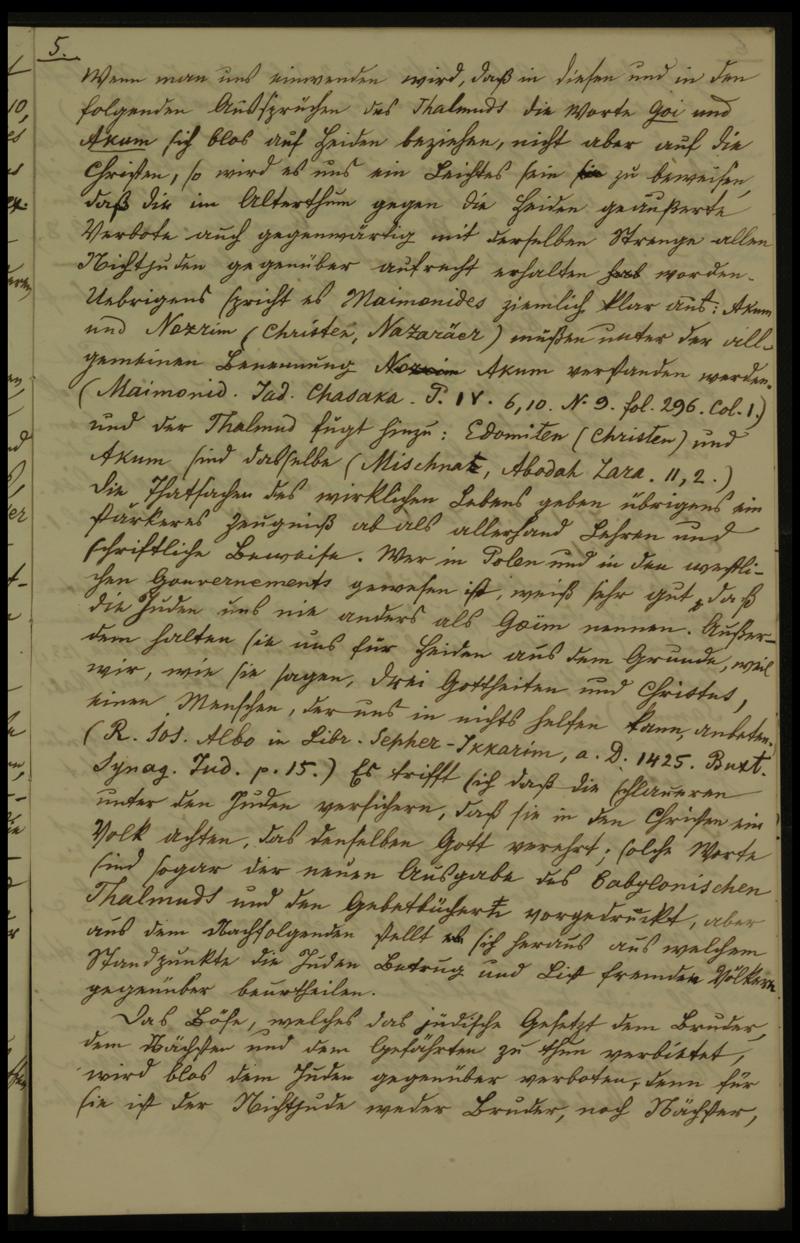 5.
Wenn man uns einwenden wird, daß in diesen und in den
folgenden Aussprüchen des Thalmuds die Worte Goi und
Akum sich blos auf Heiden beziehen, nicht aber auf die
Christen, so wird es uns ein Leichtes sein zu beweisen,
daß die im Alterthum gegen die Heiden geäußerte
Verbote auch gegenwärtig mit derselben Strenge allen
Nichtjuden gegenüber aufrecht erhalten worden.
Uebrigens spricht es Maimonides ziemlich klar aus: Akum
und Nozrim (Christen, Nazaräer) müßen unter der all-
gemeinen Benennung Akum verstanden werden.
(Maimonid. Jad. Chasaka. P. IV. 6,10. N. 9. fol. 296. Col. 1.)
und der Thalmud fügt hinzu: Edomiten (Christen) und
Akum sind dasselbe (Mischnat, Abodah Zara. II, 2.)
Die Thatsachen des wirklichen Lebens geben übrigens ein
stärkeres Zeugniß ab als allerhand Lehren und
schriftliche Beweise. Wer in Polen und in den westli-
chen Gouvernements gewesen ist, weiß sehr gut, daß
die Juden uns nie anders als Goïm nennen. Außer-
dem halten sie uns für Heiden aus dem Grunde, weil
wir, wie sie sagen, drei Gottheiten und Christus,
einen Menschen, der uns in nichts helfen kann, anbeten.
(R. Jos. Albo in Libr. Sepher-Ikkarim, a. D. 1425. Buxt.
Synag. Jud. p. 15.) Es trifft sich daß die schlaueren
unter den Juden versichern, daß sie in den Christen ein
Volk achten, das denselben Gott verehrt; solche Worte
sind sogar der neuen Ausgabe des Babylonischen
Thalmuds und den Gebetbüchern vorgedruckt, aber
aus dem Nachfolgenden stellt es sich heraus aus welchem
Standpunkte die Juden Betrug und List fremden Völkern
gegenüber beurtheilen.
Das Böse, welches das jüdische Gesetzt dem Bruder,
dem Nächsten und dem Gefährten zu thun verbietet,
wird blos dem Juden gegenüber verboten, denn für
sie ist der Nichtjude weder Bruder, noch Nächster,